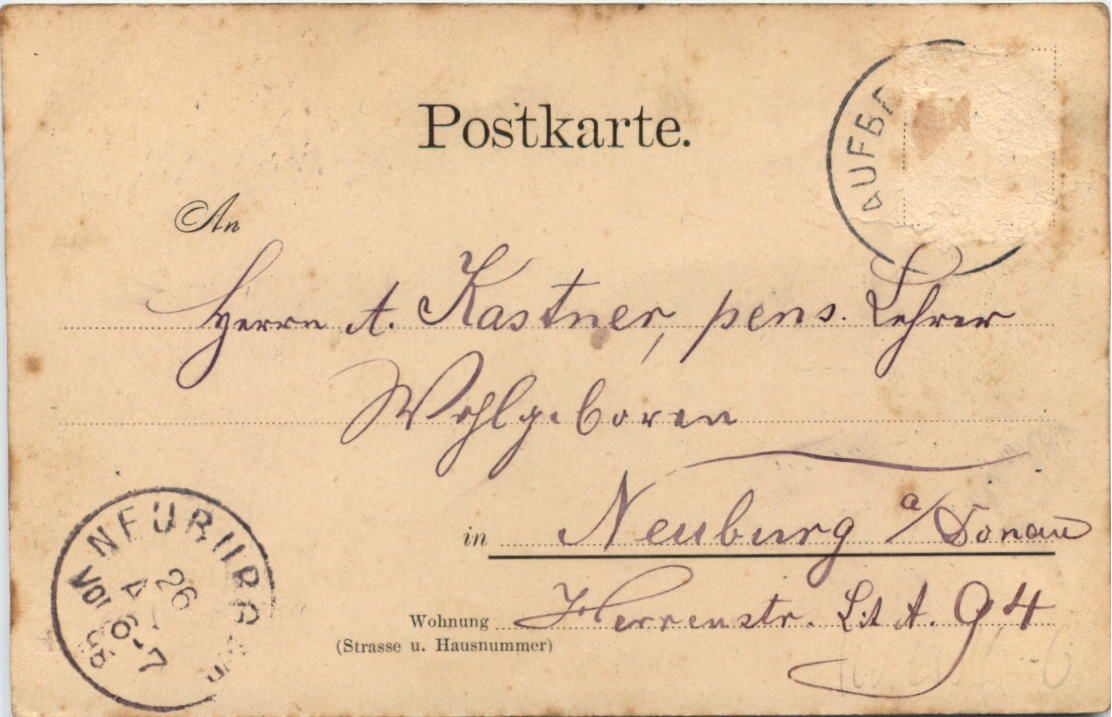 Postkarte.
AUFBE
An
Herrn A. Kastner, pens. Lehrer
Wohlgeboren
in Neuburg a/Donau
Wohnung Herrenstr. Lit A. 94
(Strasse u. Hausnummer)
NEUBURG
26
6-7
98